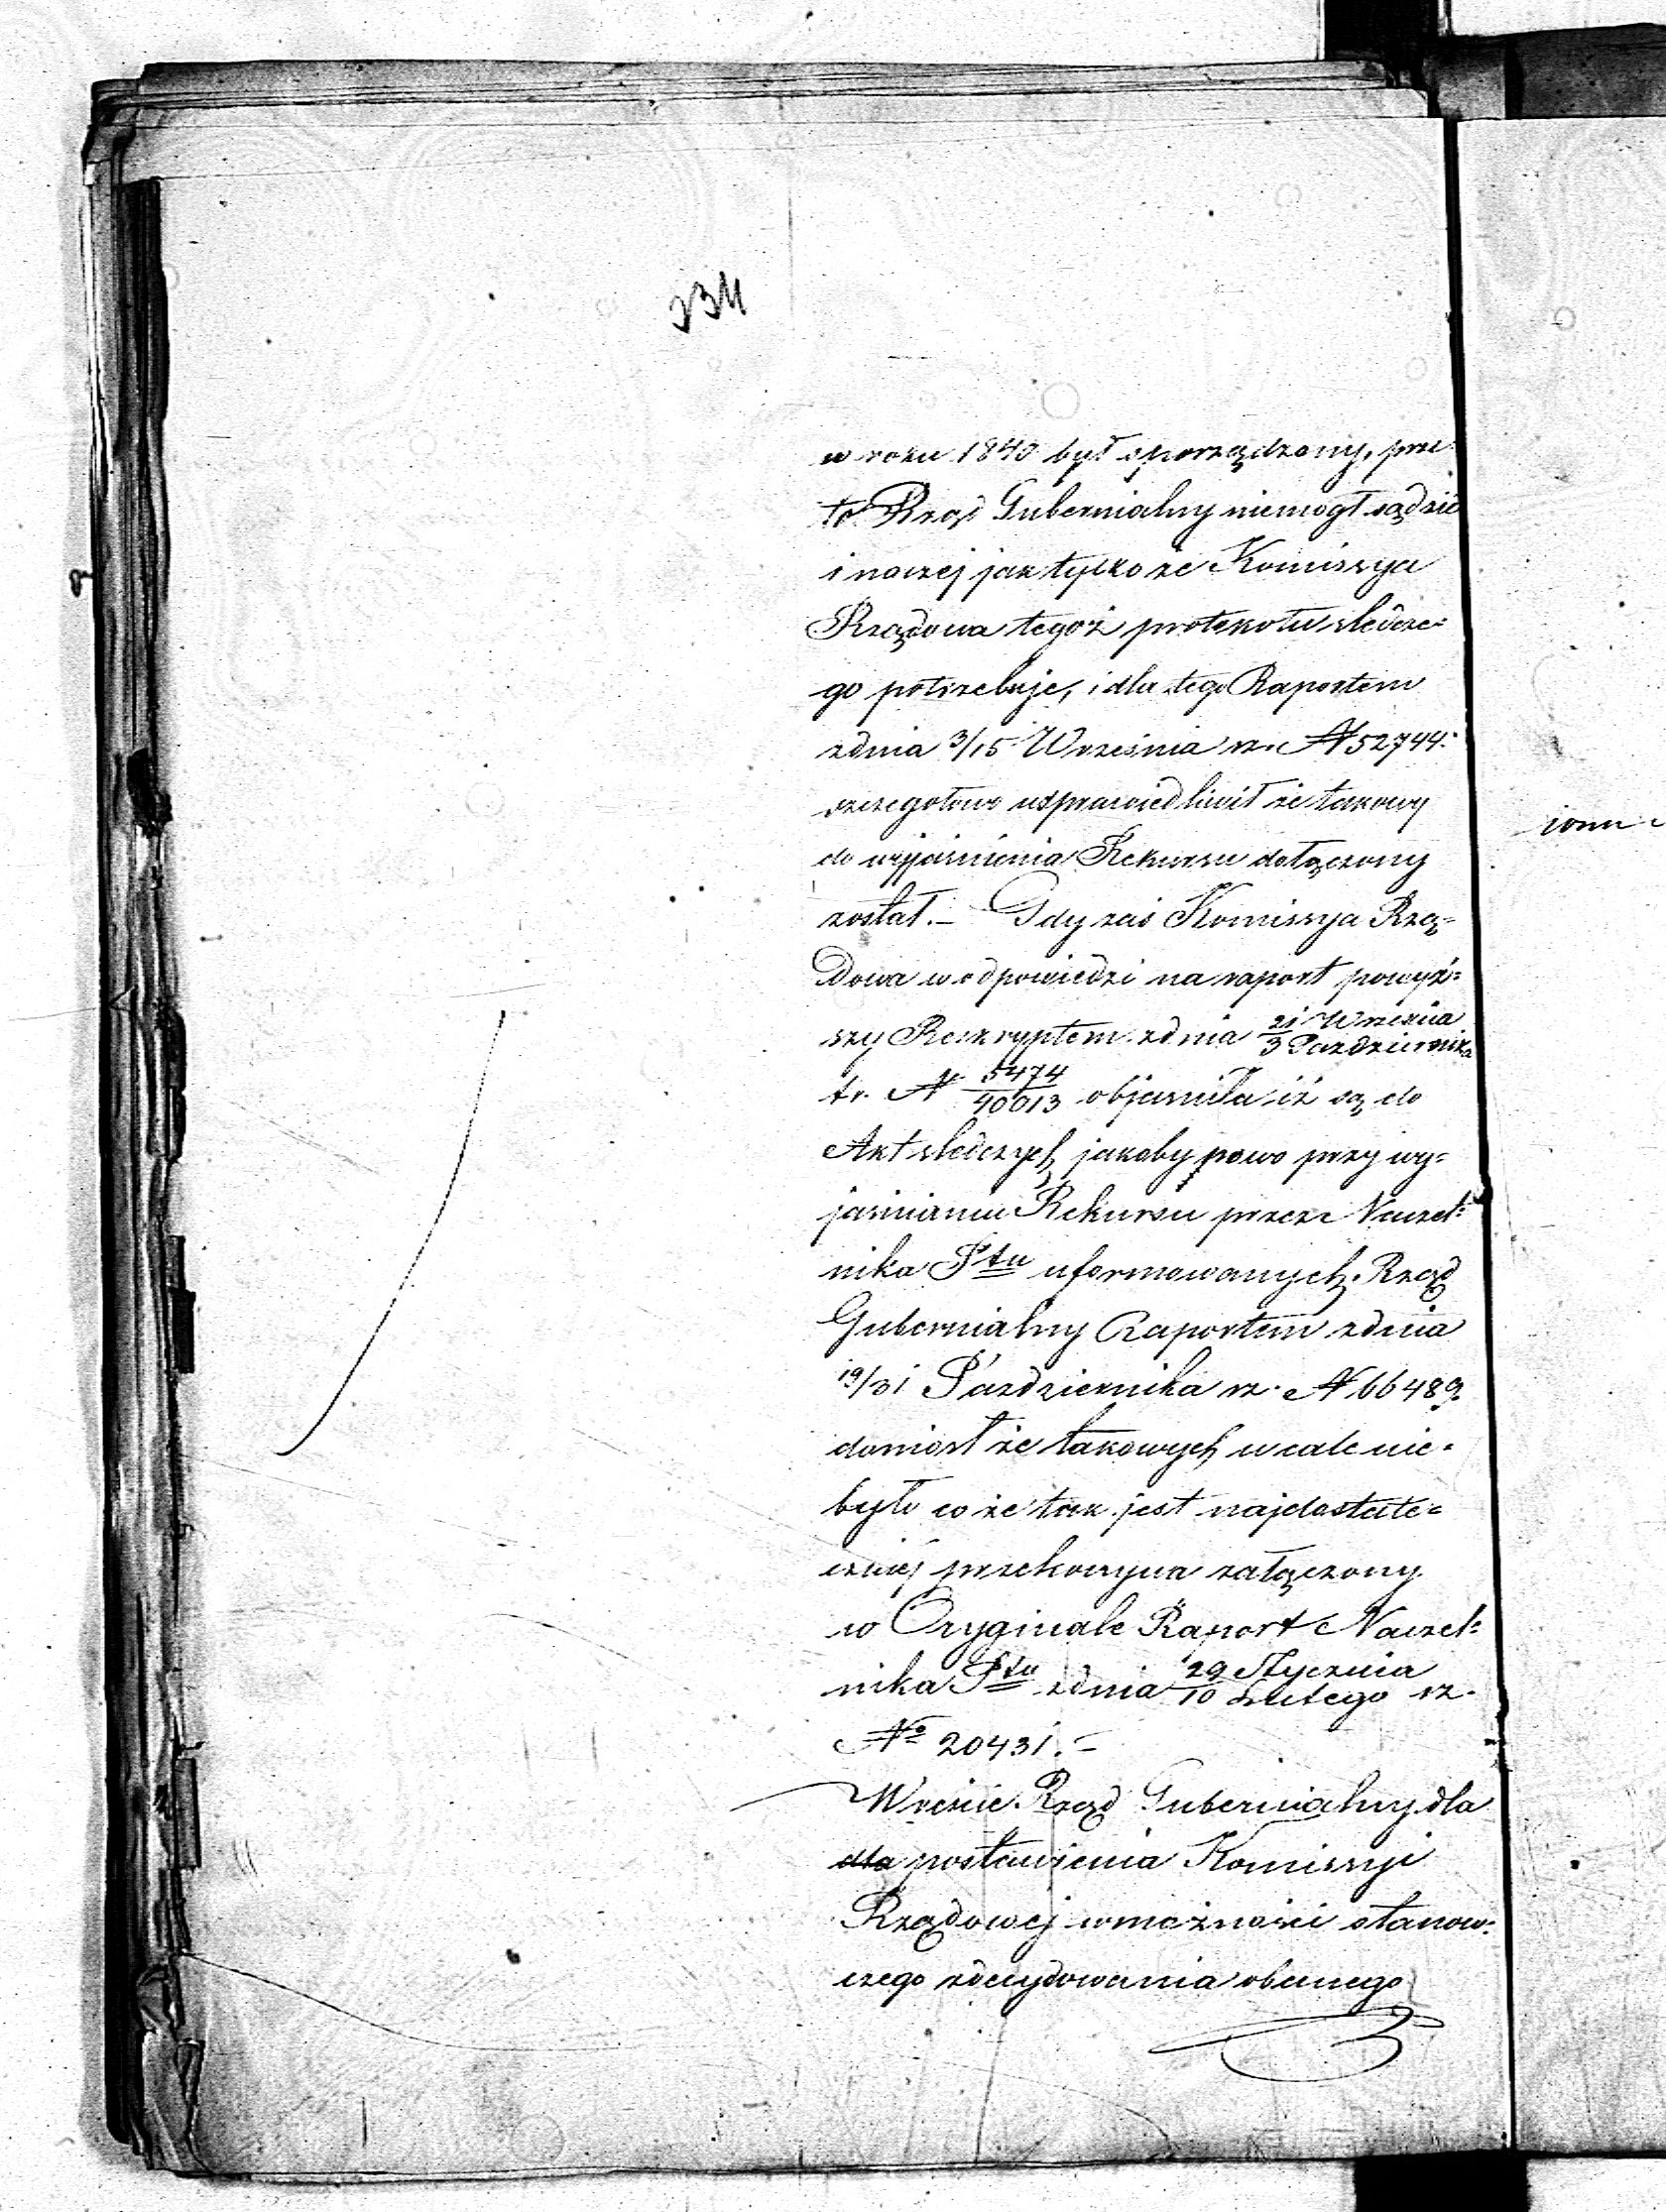 334
w roku 1843 był sporządzony, prze=
to Rząd Gubernialny niemógł sądzić
inaczej jak tylko że Komissya
Rządowa tegoż protokołu śledcze=
go potrzebuje, i dla tego Raportem
z dnia 3/15 Września rz. N 52744.
szczegółowo usprawiedliwił że takowy
do wyjaśnienia Rekursu dołączony
został. – Gdy zaś Komissya Rzą=
dowa w odpowiedzi na raport powyż=
szy Reskryptem z dnia 21 Września / 3 Października
tr. N 5474/40013 objaśniła iż są do
Akt śledczych jakoby powo przy wy=
jaśnianiu Rekursu przez Naczel=
nika Ptu uformowanych. Rząd
Gubernialny Raportem z dnia
19/31 Października rz. N 66489.
doniósł że takowych wcale nie=
było co że tak jest najdostate=
czniej przekonywa załączony
w Oryginale Raport Naczel=
nika Ptu z dnia 29 Stycznia / 10 Lutego rz.
No 20431. –
Wreście Rząd Gubernialny dla
dla postawienia Komissyi
Rządowej w możności stanow=
czego zdecydowania obecnego